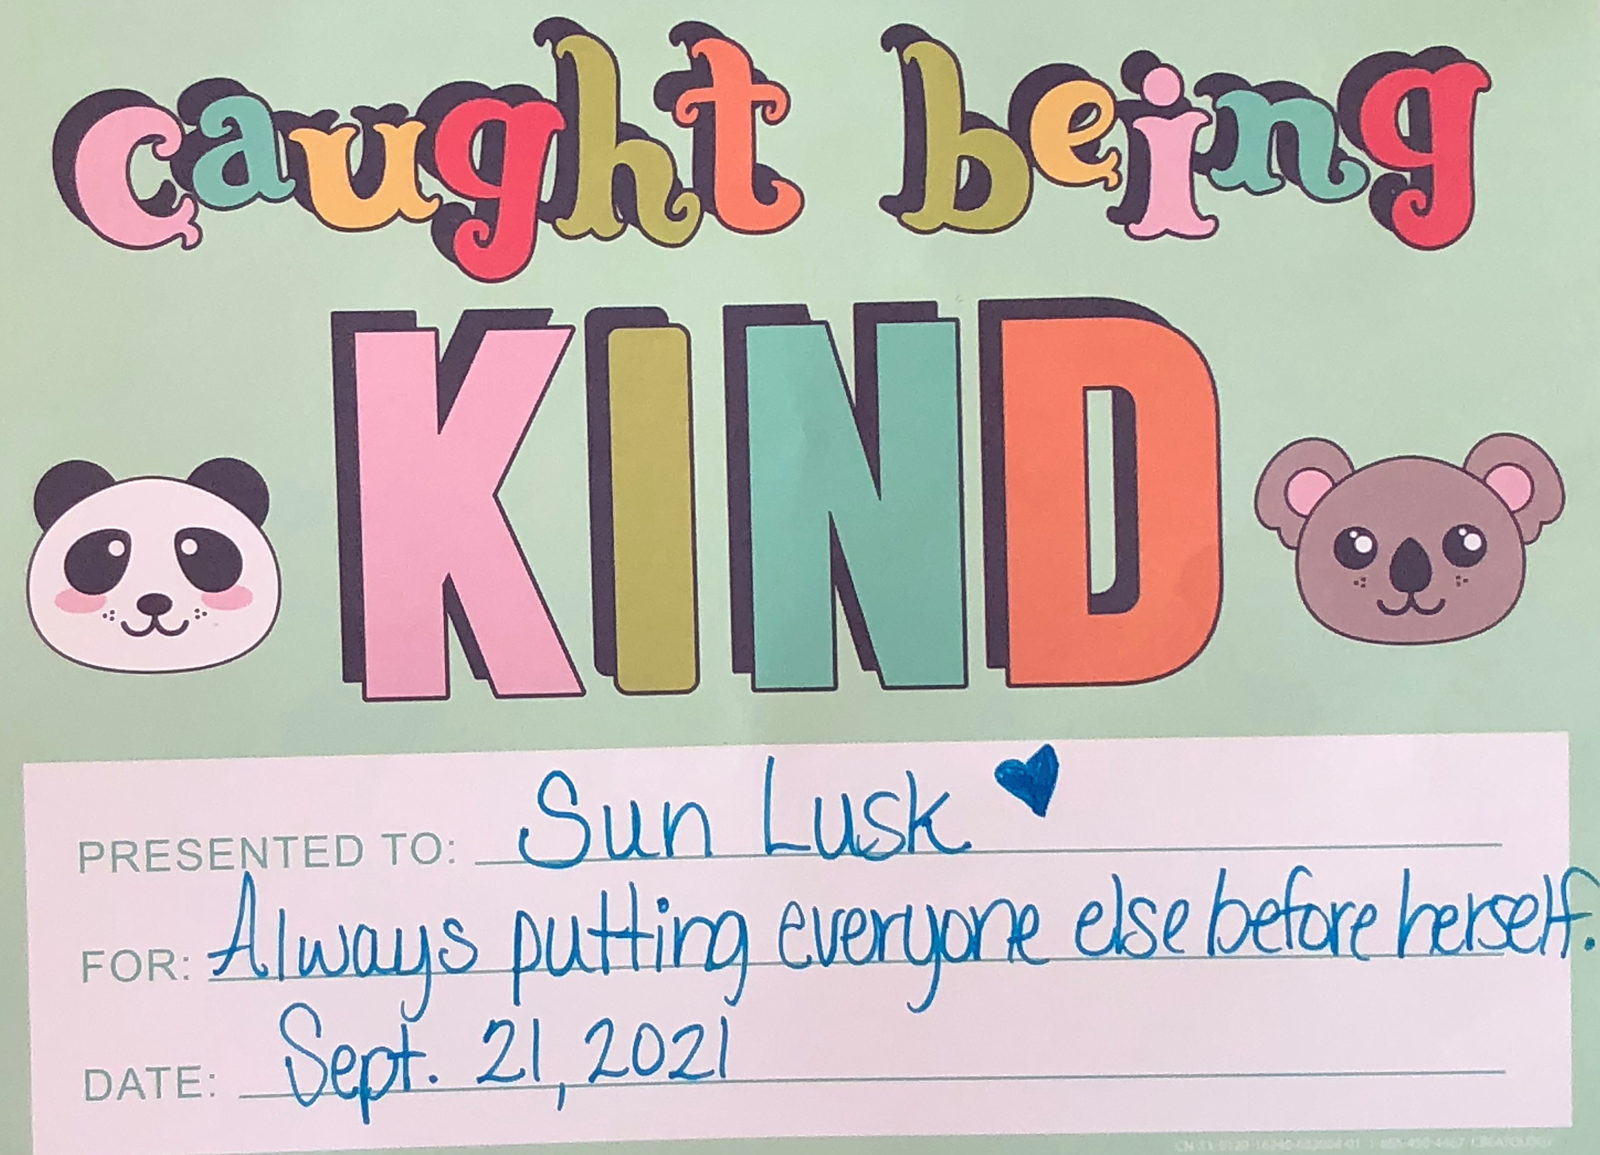 caught being
KIND
PRESENTED TO: Sun Lusk
FOR: Always putting everyone else before herself.
DATE: Sept. 21, 2021